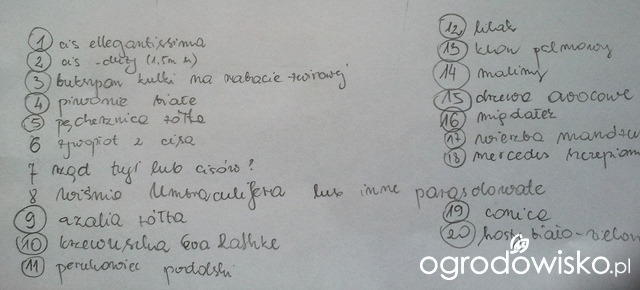 1 cis ellegantissima
2 cis - duży (1,5m h)
3 bukszpan kulki na rabacie żwirowej
4 piwonie białe
5 pęcherznica żółta
6 żywopłot z cisa
7 rząd tuji lub cisów?
8 wiśnia Umbraculifera lub inne parasolowate
9 azalia żółta
10 krzewuszka Eva Rathke
11 perukowiec podolski
12 lilak
13 klon palmowy
14 maliny
15 drzewa owocowe
16 migdałek
17 wierzba
18 mercedes szczepiona
19 conica
20 hosty biało-zielone
ogrodowisko.pl